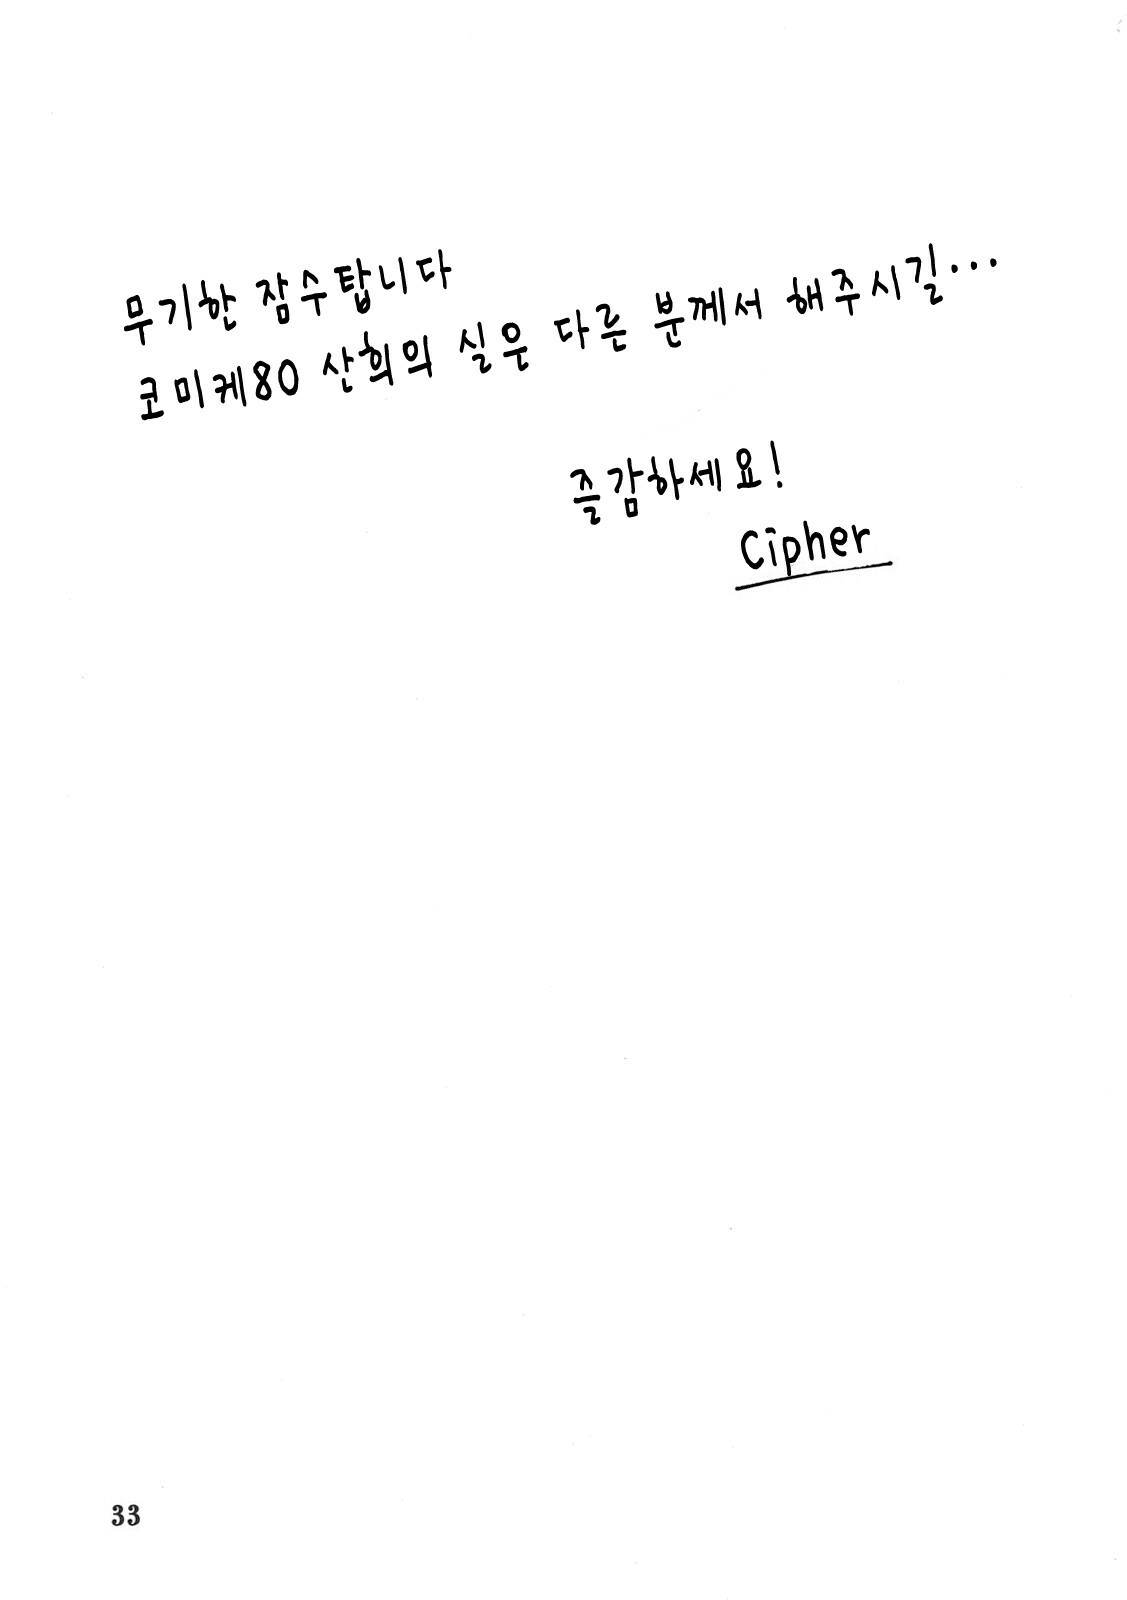 무기한 잠수탑니다
코미케80 산희의 실은 다른 분께서 해주시길...
즐감하세요!
Cipher
33